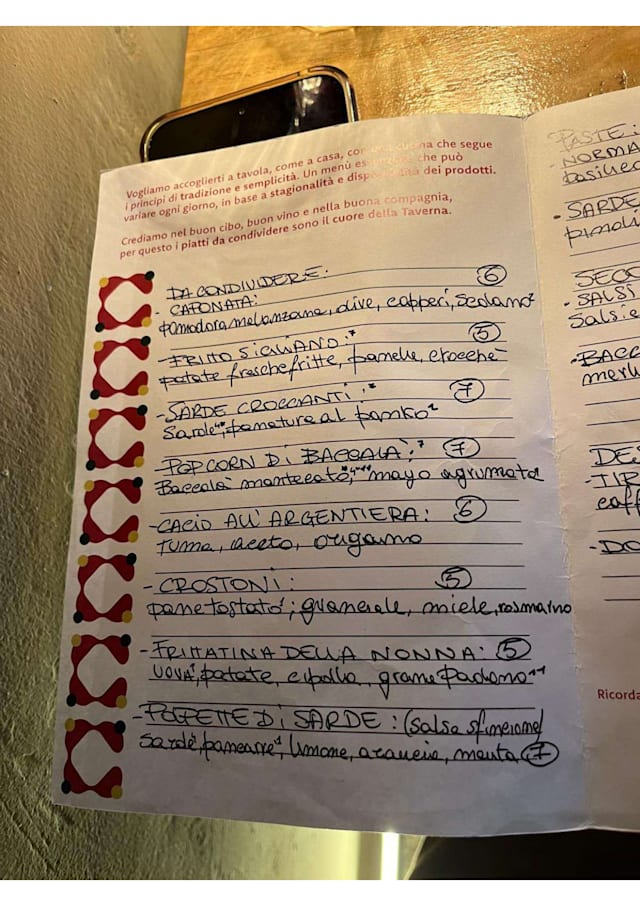 Vogliamo accoglierti a tavola, come a casa, con una cucina che segue
i principi di tradizione e semplicità. Un menù che può
variare ogni giorno, in base a stagionalità e disponibilità dei prodotti.
Crediamo nel buon cibo, buon vino e nella buona compagnia,
per questo i piatti da condividere sono il cuore della Taverna.
DA CONDIVIDERE:
- CAPONATA: 6
pomodoro, melanzane, olive, capperi, sedano²
- FRITTO SICILIANO:* 5
patate fresche fritte, panelle, crocchè
- SARDE CROCCANTI:* 7
Sarde⁴, panatura al panko¹
- POPCORN DI BACCALÀ:* 7
Baccalà mantecato, mayo agrumata
- CACIO ALL'ARGENTIERA: 6
Tuma, aceto, origano
- CROSTONI: 5
pane tostato¹, guanciale, miele, rosmarino
- FRITTATINA DELLA NONNA: 5
UOVA, patate, cipolla, grana padano
- POLPETTE DI SARDE: (salsa sfincione)
Sarde, pancarré¹, limone, arancia, menta 7
PASTE:
- NORMA
basilico
- SARDE
pinol
SECO
- SALSI
Salsic
- BACC
merlu
DE
- TIR
caff
- DO
Ricorda